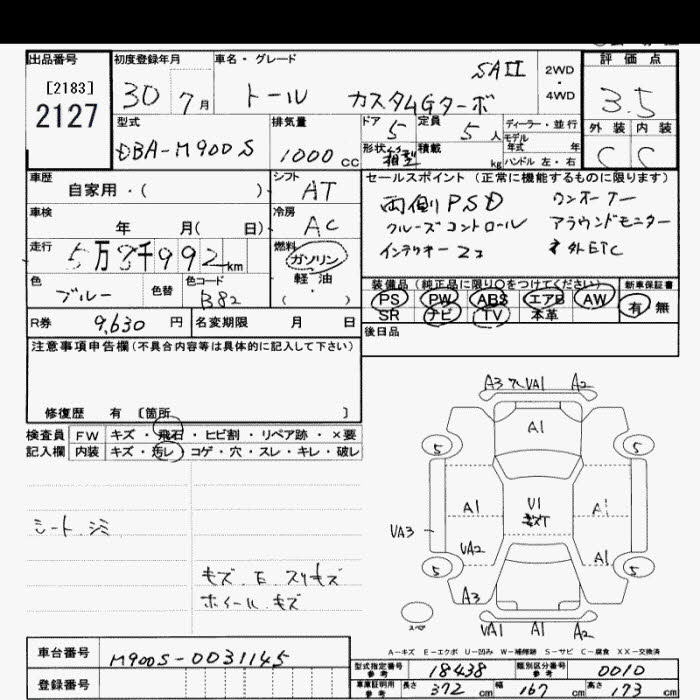 出品番号 初度登録年月 車名・グレード 評価点
[2183]
2127
30 7月 トール カスタムGターボ SAII 2WD・4WD 3.5
型式 排気量 ドア 5 定員 5人 ディーラー・並行 外装 内装
DBA-M900S 1000cc 形状 箱型 積載 kg モデル年式 年 C C
ハンドル 左・右
車歴 シフト セールスポイント (正常に機能するものに限ります)
自家用・( ) AT 両側PSD ワンオーナー
車検 冷房 クルーズコントロール アラウンドモニター
年 月( 日) AC インテリキー
走行 燃料 外ETC
5万 992km ガソリン
軽油
( )
色 色替 色コード 装備品 (純正品に限り○をつけてください) 新車保証書
ブルー B82 PS PW ABS エアB AW 有 無
SR ナビ TV 本革
R券 9,630円 名変期限 月 日 後日品
注意事項申告欄(不具合内容等は具体的に記入して下さい)
修復歴 有 [箇所 ]
検査員 FW キズ・飛石・ヒビ割・リペア跡・×要
記入欄 内装 キズ・汚レ・コゲ・穴・スレ・キレ・破レ
シート.シミ
キズ.E.スリキズ
ホイール.キズ
A3 VA1 A2
A1
5 5
A1 U1 A1
VA3
VA2 A1
5 5
A3
スペア
VA1 A1 A2
A-キズ E-エクボ U-凹み W-補修跡 S-サビ C-腐食 XX-交換済
車台番号 M900S-0031145
型式指定番号 参考 18438 類別区分番号 参考 0010
登録番号
車庫証明用 参考 長さ 372cm 幅 167cm 高さ 173cm